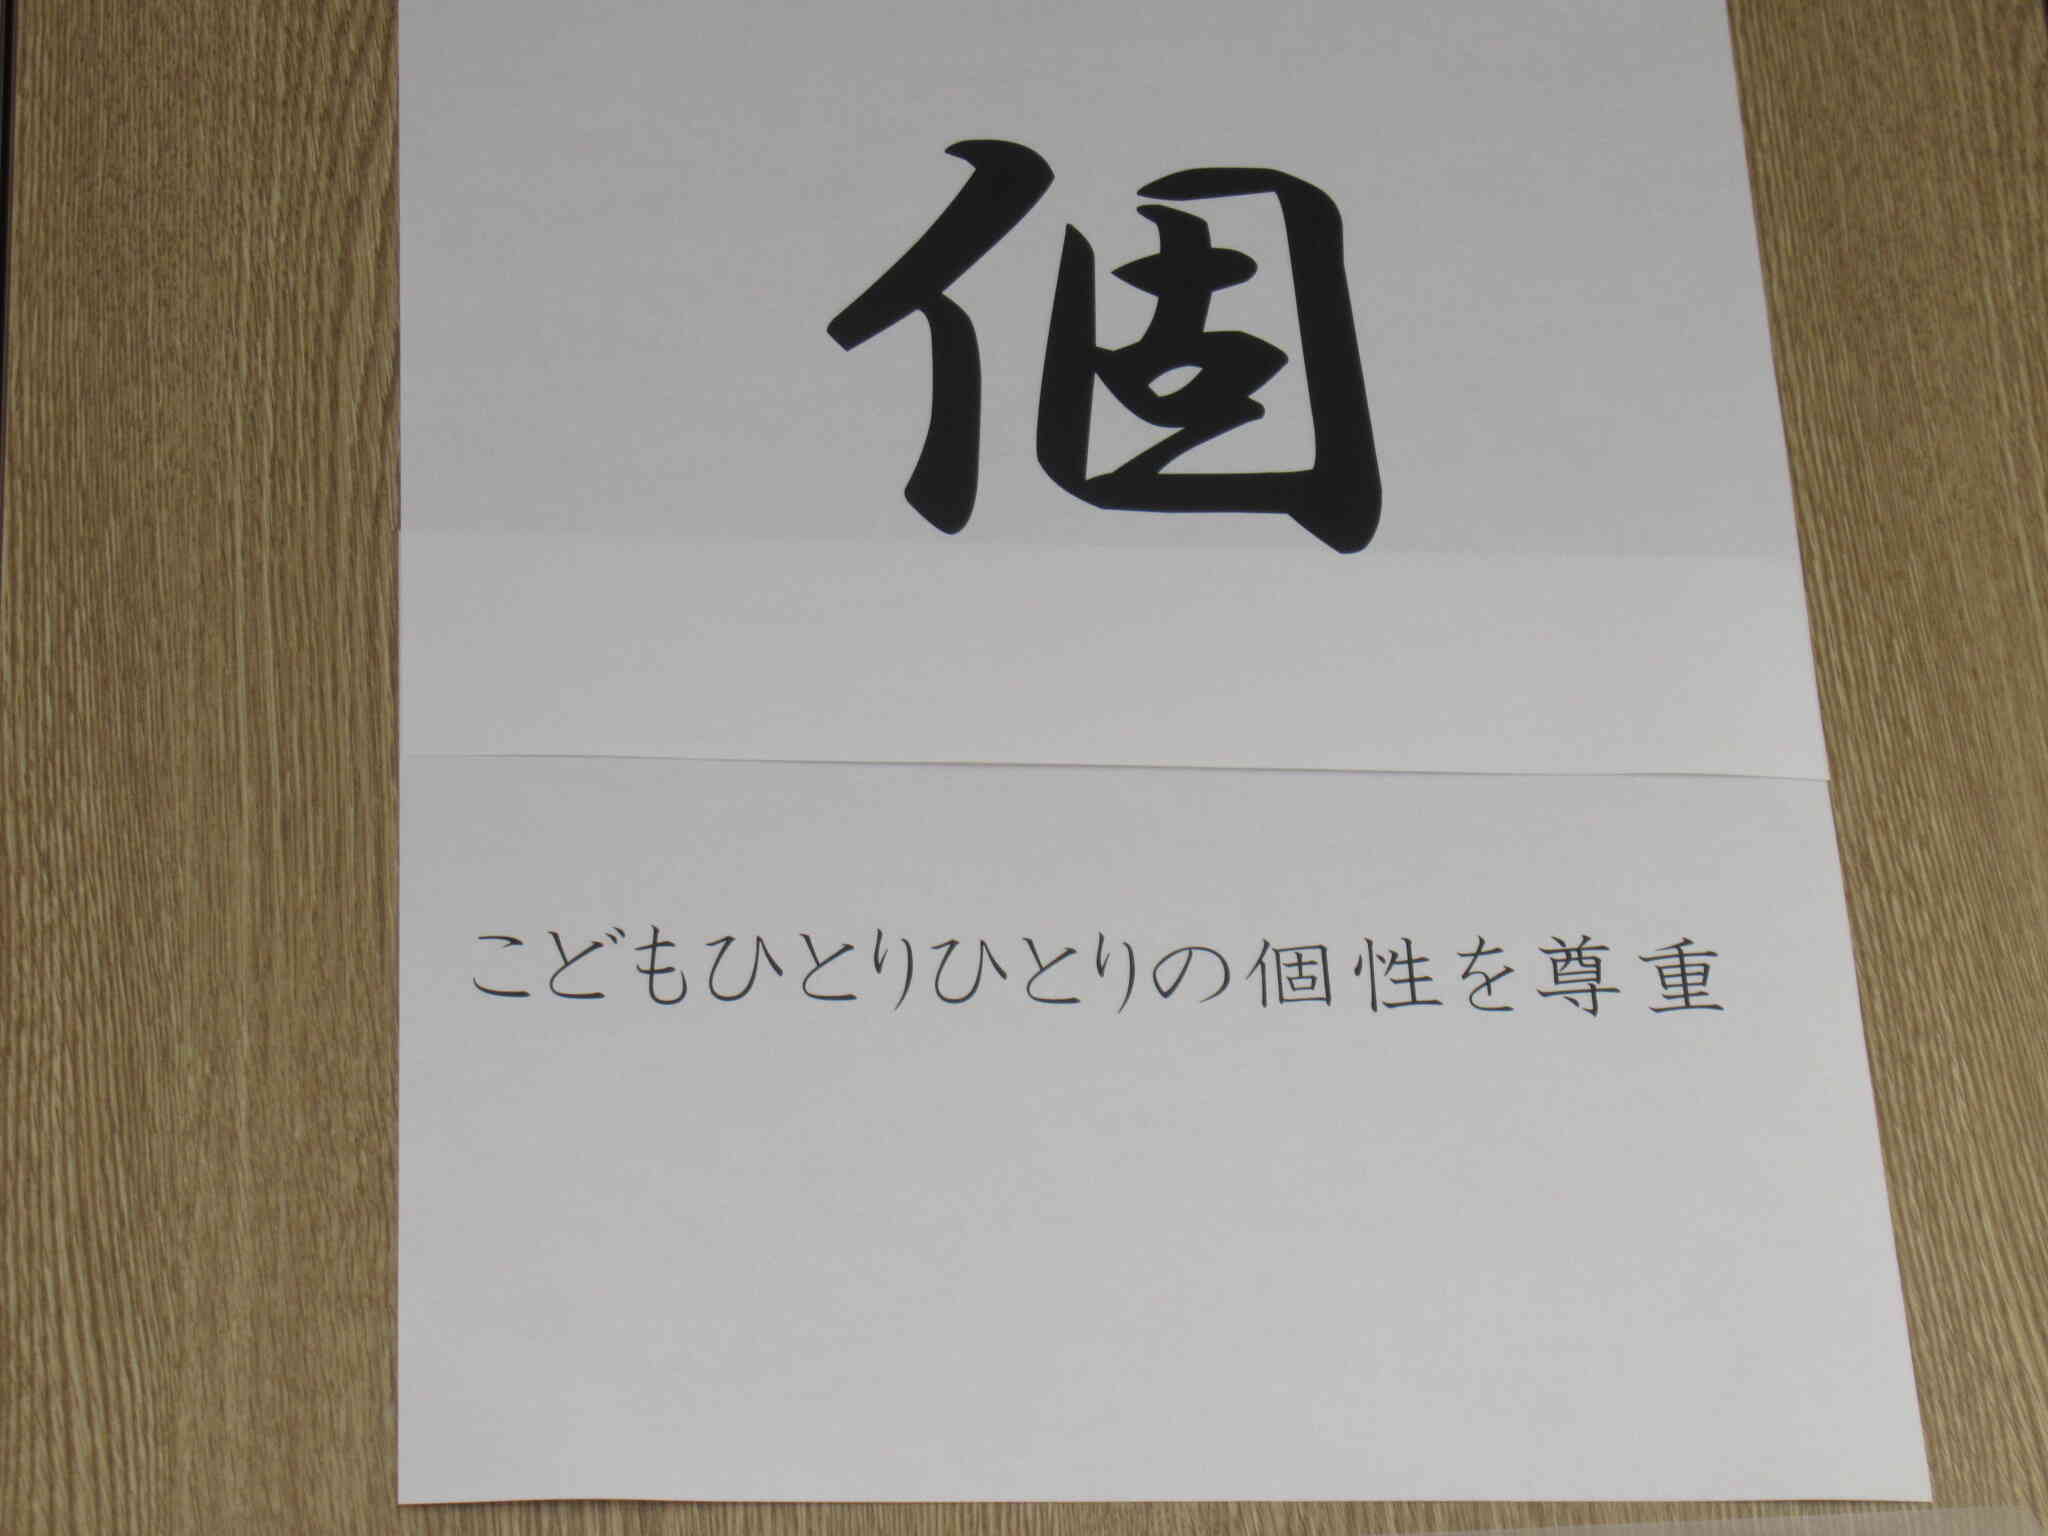 個
こどもひとりひとりの個性を尊重